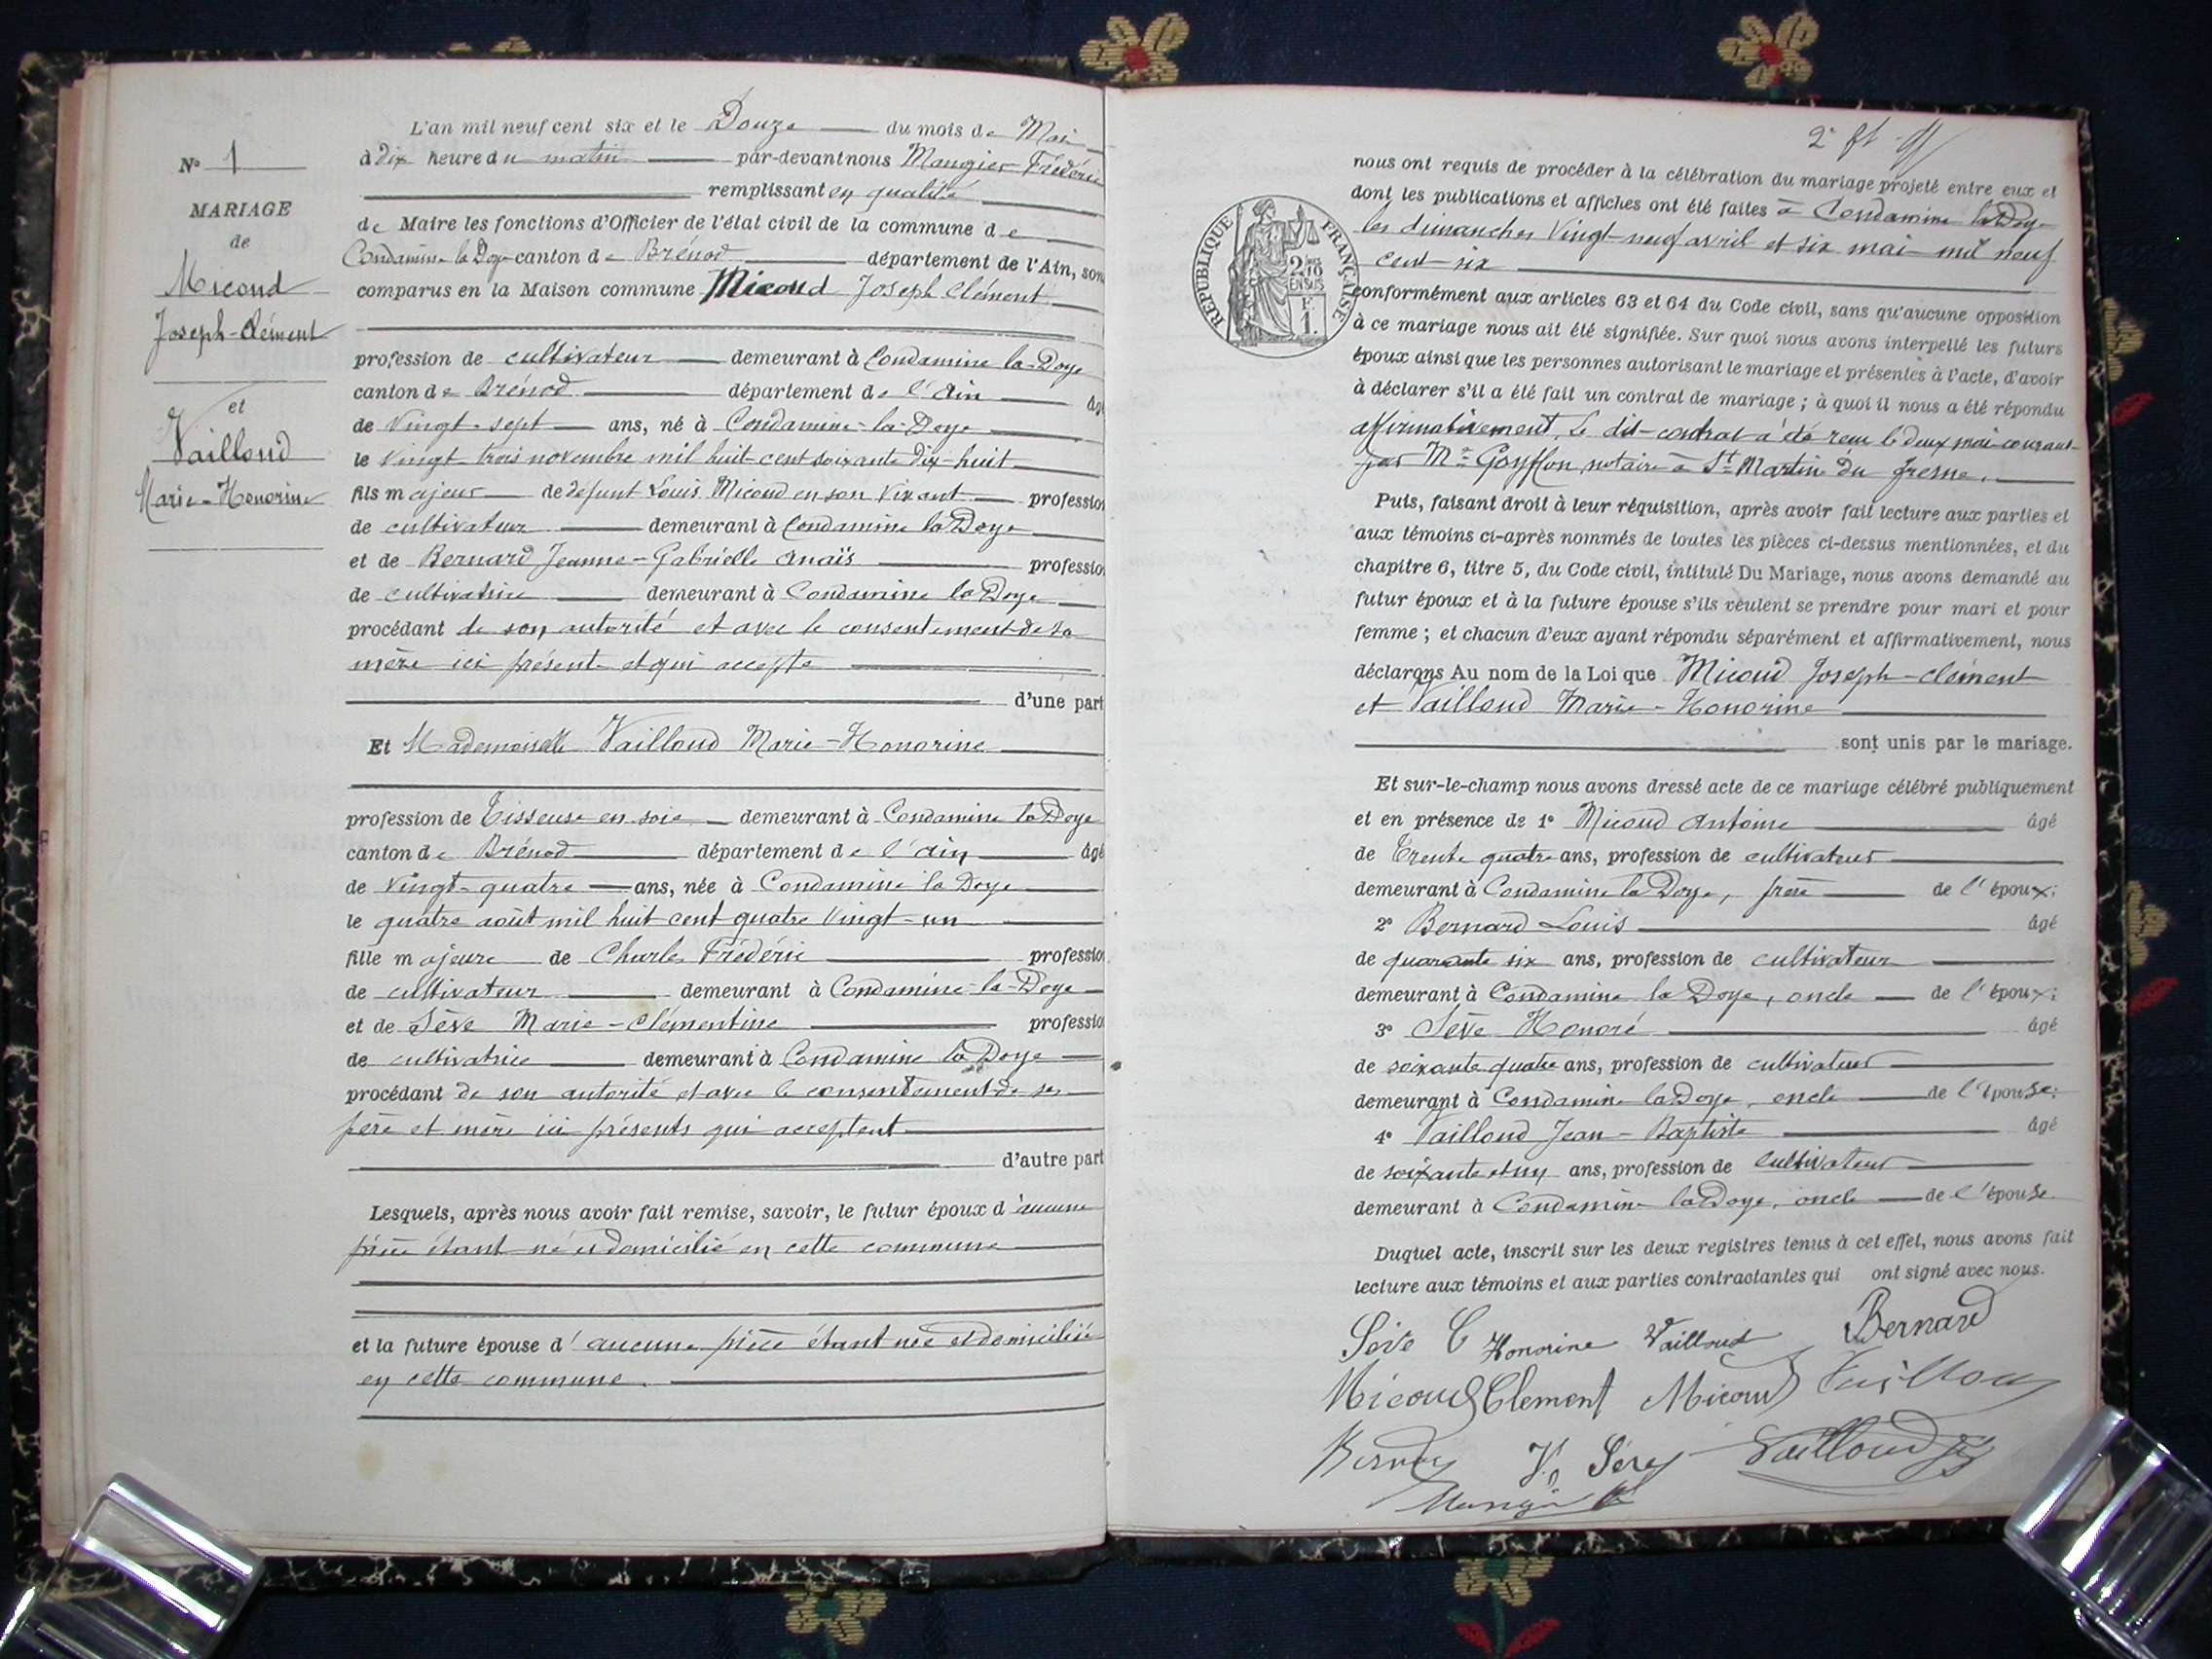 N° 1
MARIAGE
de
Micoud
Joseph-Clément
et
Vailloud
Marie-Honorine
L'an mil neuf cent six et le Douze du mois de Mai
à dix heure du matin par-devant nous Maugier Frédéric
remplissant en qualité
de Maire les fonctions d'Officier de l'état civil de la commune de
Condamine la Doye canton de Brénod département de l'Ain, son
comparus en la Maison commune Micoud Joseph Clément
profession de cultivateur demeurant à Condamine la-Doye
canton de Brénod département de l'Ain âgé
de Vingt-sept ans, né à Condamine-la-Doye
le vingt trois novembre mil huit cent soixante Dix-huit
fils majeur de défunt Louis Micoud en son vivant profession
de cultivateur demeurant à Condamine la Doye
et de Bernard Jeanne-Gabrielle Anaïs profession
de cultivatrice demeurant à Condamine la Doye
procédant de son autorité et avec le consentement de sa
mère ici présente et qui accepte
d'une part
Et Mademoiselle Vailloud Marie-Honorine
profession de Tisseuse en soie demeurant à Condamine la Doye
canton de Brénod département de l'Ain âgé
de Vingt-quatre ans, née à Condamine la Doye
le quatre août mil huit cent quatre Vingt-un
fille majeure de Charles Frédéric profession
de cultivateur demeurant à Condamine-la-Doye
et de Sève Marie-Clémentine profession
de cultivatrice demeurant à Condamine la Doye
procédant de son autorité et avec le consentement de ses
père et mère ici présents qui acceptent
d'autre part
Lesquels, après nous avoir fait remise, savoir, le futur époux d'aucune
pièce étant né et domicilié en cette commune
et la future épouse d'aucune pièce étant née et domiciliée
en cette commune.
2e
nous ont requis de procéder à la célébration du mariage projeté entre eux et
dont les publications et affiches ont été faites à Condamine la Doye
les dimanches Vingt-neuf avril et six mai mil neuf
cent six
RÉPUBLIQUE FRANÇAISE
2/10
EN SUS
F.
1.
conformément aux articles 63 et 64 du Code civil, sans qu'aucune opposition
à ce mariage nous ait été signifiée. Sur quoi nous avons interpellé les futurs
époux ainsi que les personnes autorisant le mariage et présentes à l'acte, d'avoir
à déclarer s'il a été fait un contrat de mariage ; à quoi il nous a été répondu
affirmativement. Le dit contrat a été reçu le deux mai courant
par Me Goyffon notaire à St Martin du fresne.
Puis, faisant droit à leur réquisition, après avoir fait lecture aux parties et
aux témoins ci-après nommés de toutes les pièces ci-dessus mentionnées, et du
chapitre 6, titre 5, du Code civil, intitulé Du Mariage, nous avons demandé au
futur époux et à la future épouse s'ils veulent se prendre pour mari et pour
femme ; et chacun d'eux ayant répondu séparément et affirmativement, nous
déclarons Au nom de la Loi que Micoud Joseph-Clément
et Vailloud Marie-Honorine
sont unis par le mariage.
Et sur-le-champ nous avons dressé acte de ce mariage célébré publiquement
et en présence de 1° Micoud Antoine âgé
de Trente quatre ans, profession de cultivateur
demeurant à Condamine la Doye, frère de l'époux;
2° Bernard Louis âgé
de quarante six ans, profession de cultivateur
demeurant à Condamine la Doye, oncle de l'époux;
3° Sève Honoré âgé
de soixante quatre ans, profession de cultivateur
demeurant à Condamine la Doye, oncle de l'épouse;
4° Vailloud Jean-Baptiste âgé
de soixante et un ans, profession de cultivateur
demeurant à Condamine la Doye, oncle de l'épouse
Duquel acte, inscrit sur les deux registres tenus à cet effet, nous avons fait
lecture aux témoins et aux parties contractantes qui ont signé avec nous.
Sève C Honorine Vailloud Bernard
Micoud Clement Micoud Vailloud
Bernard Sève Vailloud
Maugier